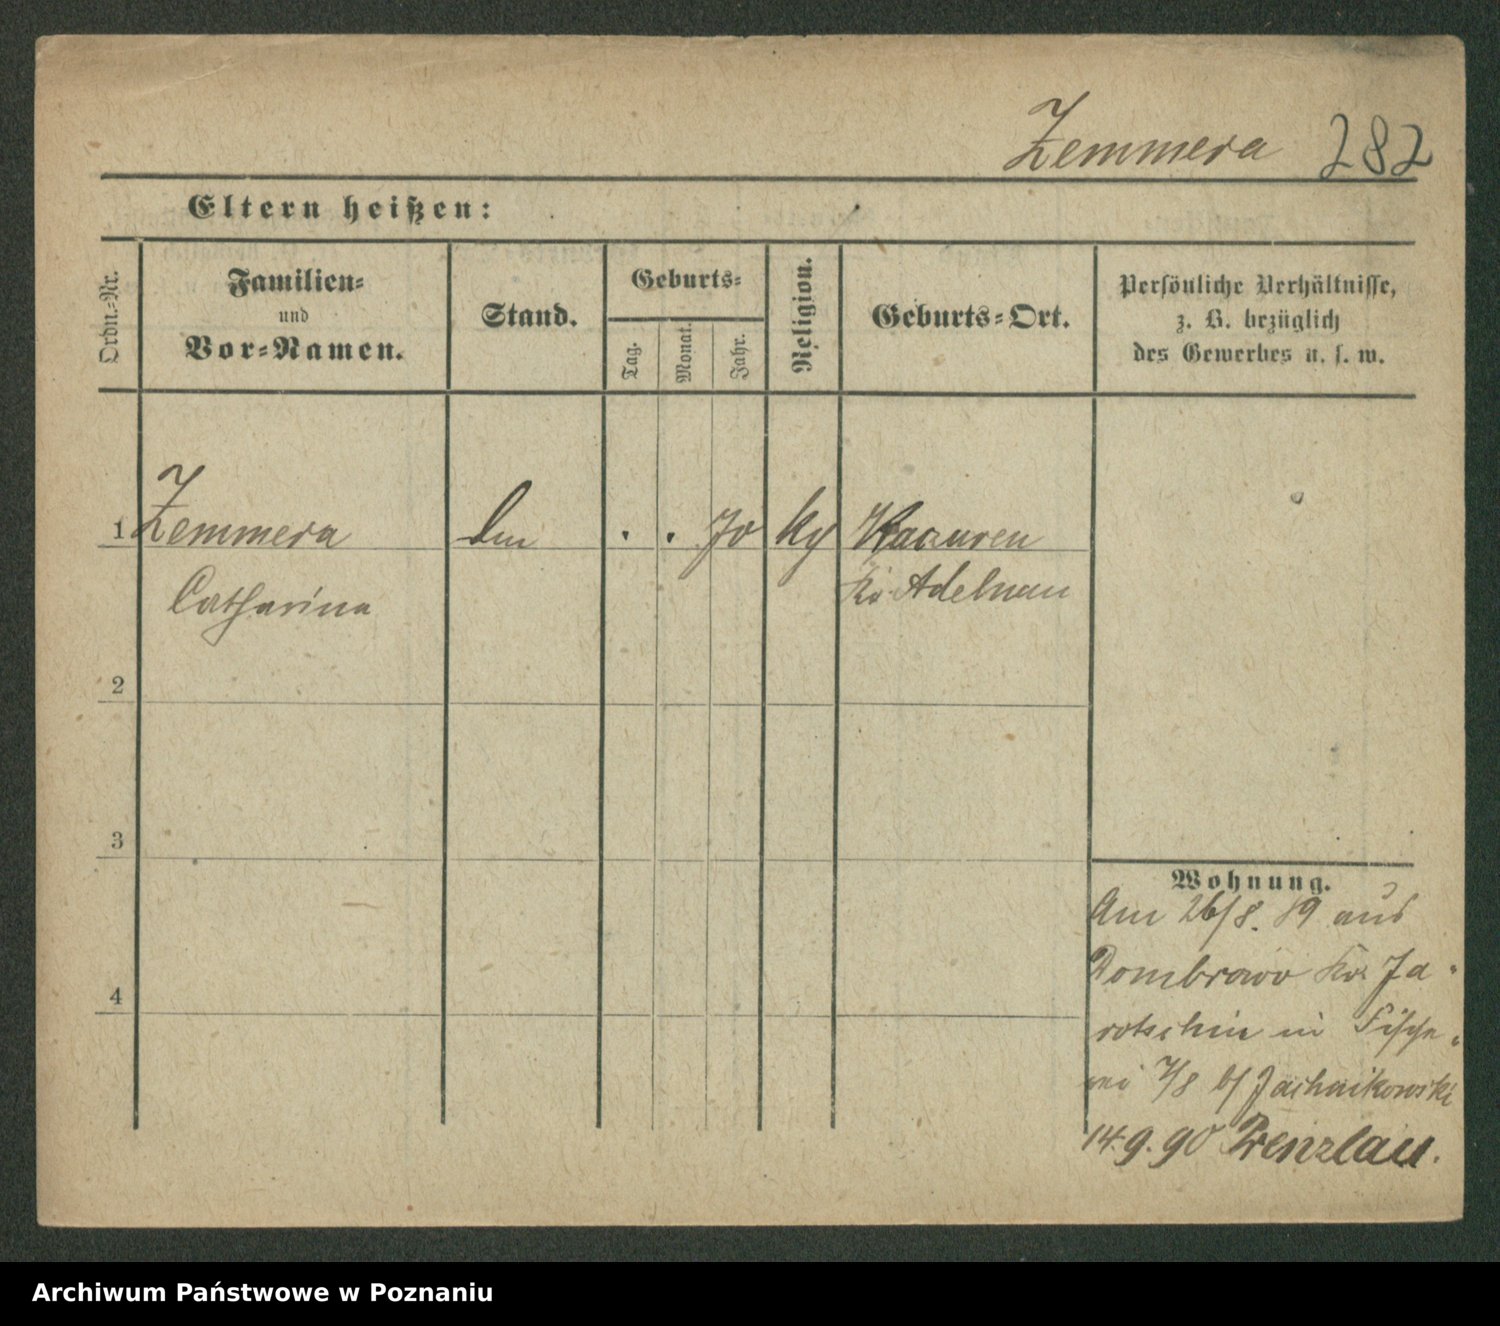 Zemmera 282
Eltern heißen:
Ordn.-Nr.
Familien-
und
Vor-Namen.
Stand.
Geburts-
Tag.
Monat.
Jahr.
Religion.
Geburts-Ort.
Persönliche Verhältnisse,
z. B. bezüglich
des Gewerbes u. s. w.
1 Zemmera . . 70
Catharina Kr. Adelnau
2
3
4
Wohnung.
Am 26/8. 89 aus
Dombrowo Kr. Ja-
rotschin in Fische-
rei 7/8 b/
14.9.90 Prenzlau.
Archiwum Państwowe w Poznaniu